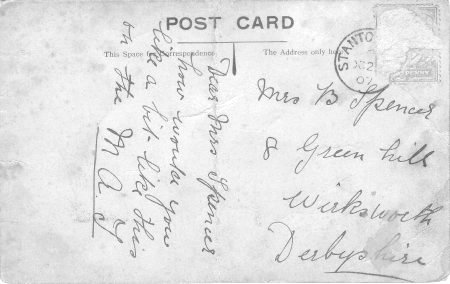 POST CARD
This Space for Correspondence
The Address only here
Dear Mrs Spencer
how would you
like a bit like this
on the M A T
STANTO
07
PENNY
Mrs B Spencer
8 Green hill
Wirksworth
Derbyshire